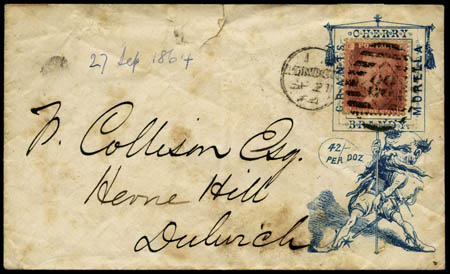 27 Sep 1864
CHERRY
GRANT'S
MORELLA
BRANDY
LONDON
SP 27
64
42/-
PER DOZ
Collison Esq.
Herne Hill
Dulwich